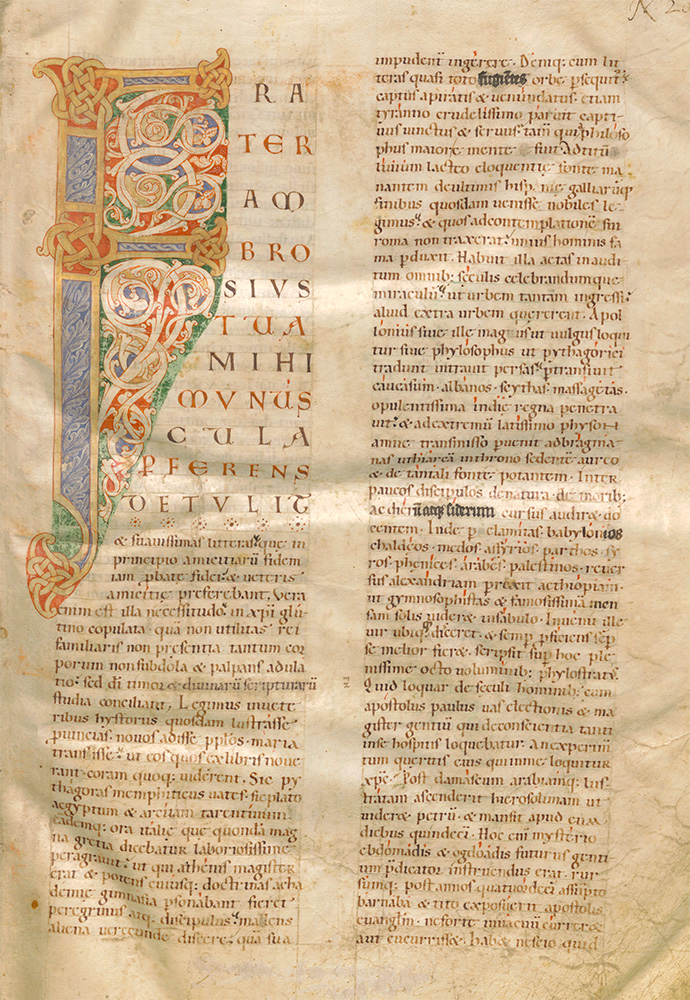 N 20
F RA
TER
AM
BRO
SIVS
TUA
MIHI
MVNUS
CULA
PFERENS
DETVLIT
& suauissimas litteras. que in
principio amicitiarũ fidem
iam pbatę fidei. & ueteris
amicitię preferebant. Vera
enim est illa necessitudo. & xp̃i glu
tino copulata. quã non utilitas rei
familiaris non presentia tantum cor
porum non subdola & palpans adula
tio. sed dĩ timor & diuinarũ scripturarũ
studia conciliant. Legimus in uete
ribus hystoriis quosdam lustrasse
puincias. nouos adisse pplos. maria
transisse. ut eos quos ex libris noue
rant. coram quoq; uiderent. Sic py
thagoras memphiticos uates. sic plato
aegyptum & architam tarentinum.
eademq; ora italię que quondã mag
na gretia dicebatur. laboriosissime
peragrauit. ut qui athenis magister
erat & potens. cuiusq; doctrinas acha
demię gimnasia psonabant. fieret
peregrinus atq; discipulus. malens
aliena uerecunde discere. quã sua
impudent̃ ingerere. Deniq; cum lit
teras quasi toto fugientes orbe psequit̃.
captus a piratis & uenundatus. etiam
tyranno crudelissimo paruit. capti
uus uinctus & seruus. tam̃ qui philoso
phus maiore emente se fuit. Ad titũ
liuium lacteo eloquentię fonte ma
nantem. de ultimis hispanię galliarũq;
finibus quosdam uenisse nobiles le
gimus. & quos ad contemplationẽ sui
roma non traxerat. unius hominis fa
ma pduxit. Habuit illa aetas inaudi
tum omnib; sęculis celebrandumque
miraculũ. ut urbem tantam ingressi.
aliud extra urbem quererent. Apol
lonius siue ille magus ut uulgus loqui
tur siue phylosophus ut pythagorici
tradunt. intrauit persas. ptransiuit
caucasum. albanos. scythas. massagetas.
opulentissima indię regna penetra
uit. & ad extremũ latissimo physon
amne transmisso puenit ad bragma
nas. ut hiarcã in throno sedentẽ aureo
& de tantali fonte potantem. Inter
paucos discipulos de natura. de morib;
ac dierũ atq; siderum cursus audir& do
centem. Inde p elamitas. babylonios
chaldeos. medos. assyrios. parthos. sy
ros. phenices. arabes. palestinos. reuer
sus alexandriam. prexit aethiopiam.
ut gymnosophistas & famosissimã men
sam solis uider& in sabulo. Inuenit ille
uir ubiq; qd disceret. & semp pficiens sẽp
se melior fier&. scripsit sup hoc ple
nissime octo uoluminib; phylostratus.
Quid loquar de sęculi hominib; cum
apostolus paulus uas electionis & ma
gister gentiũ qui de conscientia tanti
in se hospitis loquebatur. an experim̃
tum quęritis eius qui in me loquitur
xp̃c. Post damascum arabiamq; lus
tratam ascenderit hierosolimam ut
uider& petrũ. & mansit apud eum
diebus quindecĩ. Hoc enĩ mysterio
ebdomadis & ogdoadis futurus genti
um pdicator instruendus erat. rur
sumq; post annos quatuordecĩ assũpto
barnaba & tito exposuerit apostolis
euanglm̃. ne forte in uacuũ curreret
aut cucurriss&. hab& nescio quid